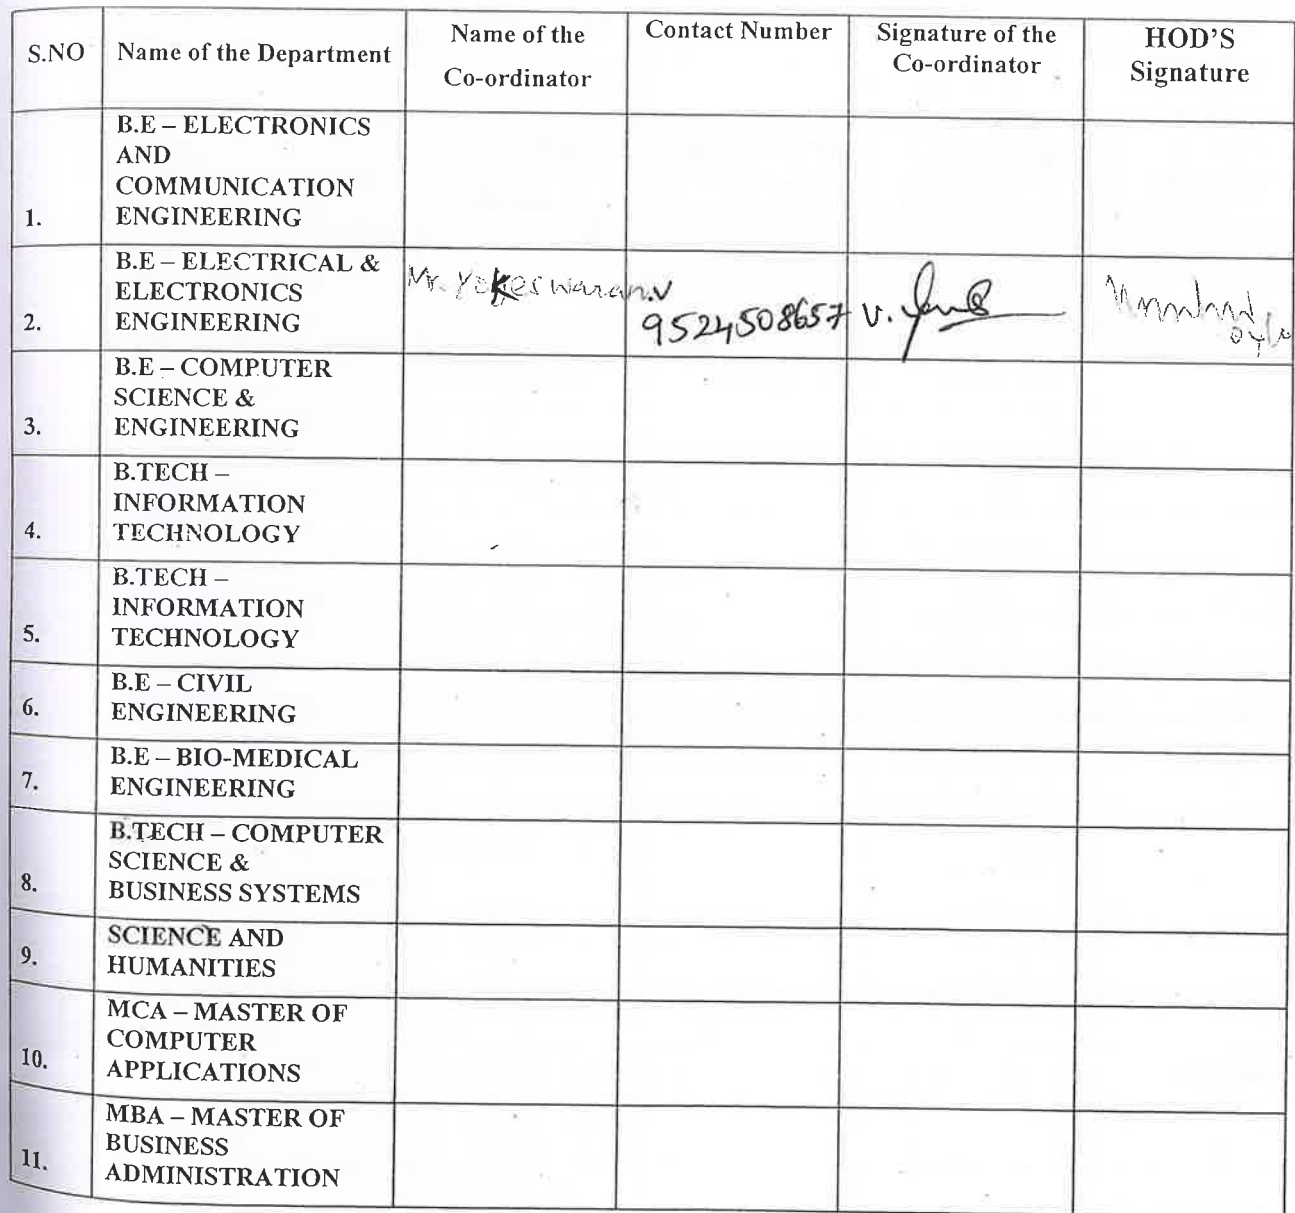 S.NO
Name of the Department
Name of the
Co-ordinator
Contact Number
Signature of the
Co-ordinator
HOD'S
Signature
1.
B.E – ELECTRONICS
AND
COMMUNICATION
ENGINEERING
2.
B.E – ELECTRICAL &
ELECTRONICS
ENGINEERING
Mr. Yokeswaran.V
9524508657
V.
3.
B.E – COMPUTER
SCIENCE &
ENGINEERING
4.
B.TECH –
INFORMATION
TECHNOLOGY
5.
B.TECH –
INFORMATION
TECHNOLOGY
6.
B.E – CIVIL
ENGINEERING
7.
B.E – BIO-MEDICAL
ENGINEERING
8.
B.TECH – COMPUTER
SCIENCE &
BUSINESS SYSTEMS
9.
SCIENCE AND
HUMANITIES
10.
MCA – MASTER OF
COMPUTER
APPLICATIONS
11.
MBA – MASTER OF
BUSINESS
ADMINISTRATION